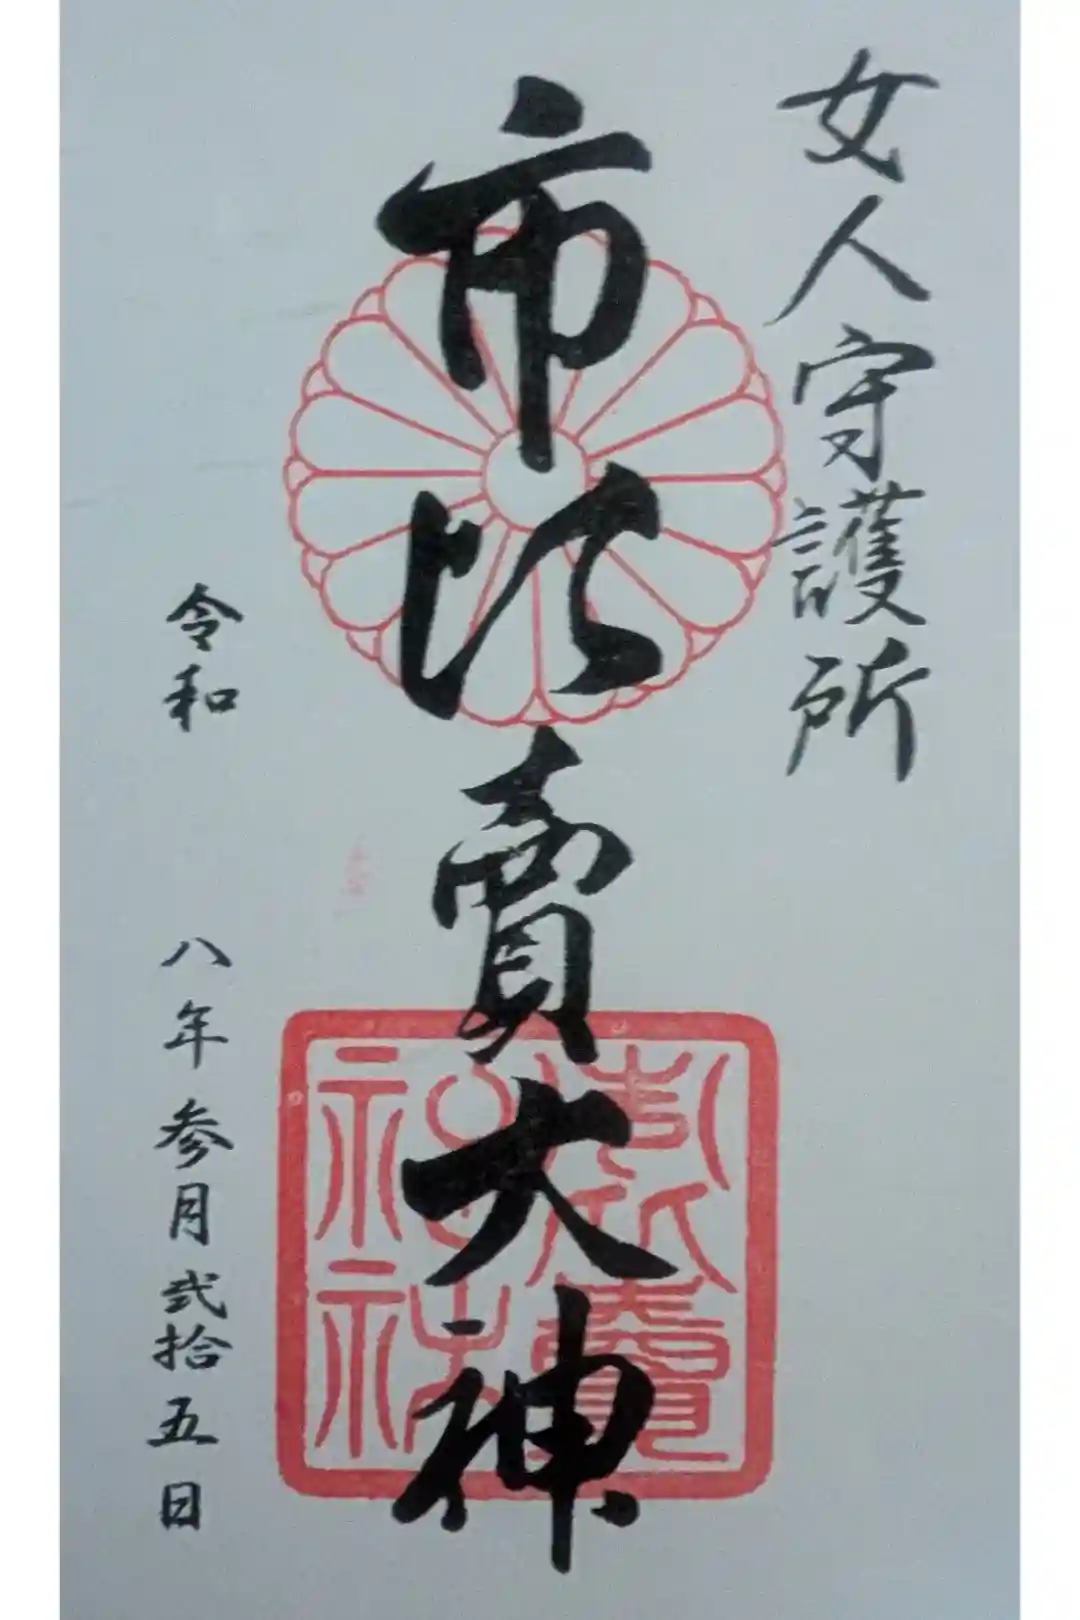 女人守護所
市比賣大神
市比賣神社
令和 八年参月弐拾五日